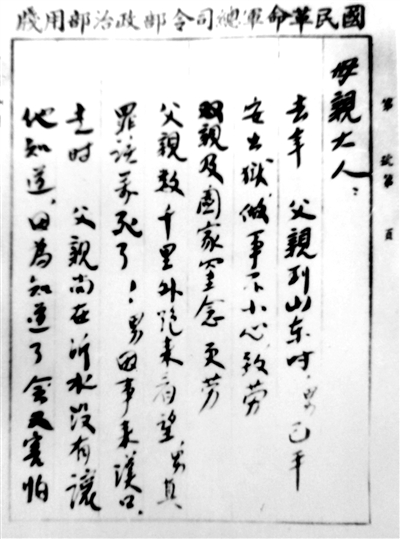 國民革命軍總司令部政治部用牋
第 號第 頁
母親大人：
去年 父親到山东时，男已平
安出獄，做事不小心致劳
親及家罣念更劳
父親数千里外跑来看望，男真
罪該萬死了！男因事来漢口，
走时 父親尚在沂水没有讓
他知道，因為知道了会又害怕